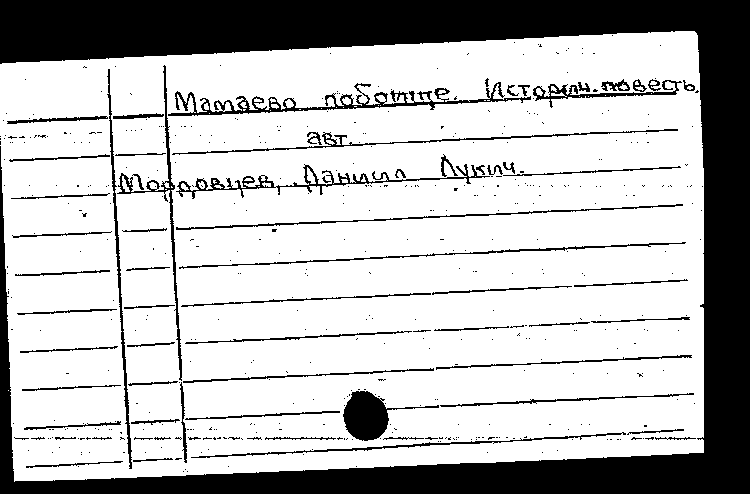 Мамаево побоище. Историч. повесть.
авт.
Мордовцев, Даниил Лукич.